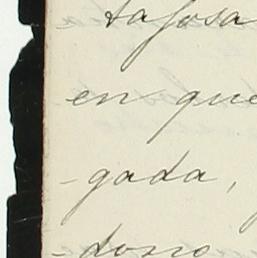 tafosa
en que
-gada,
-dono